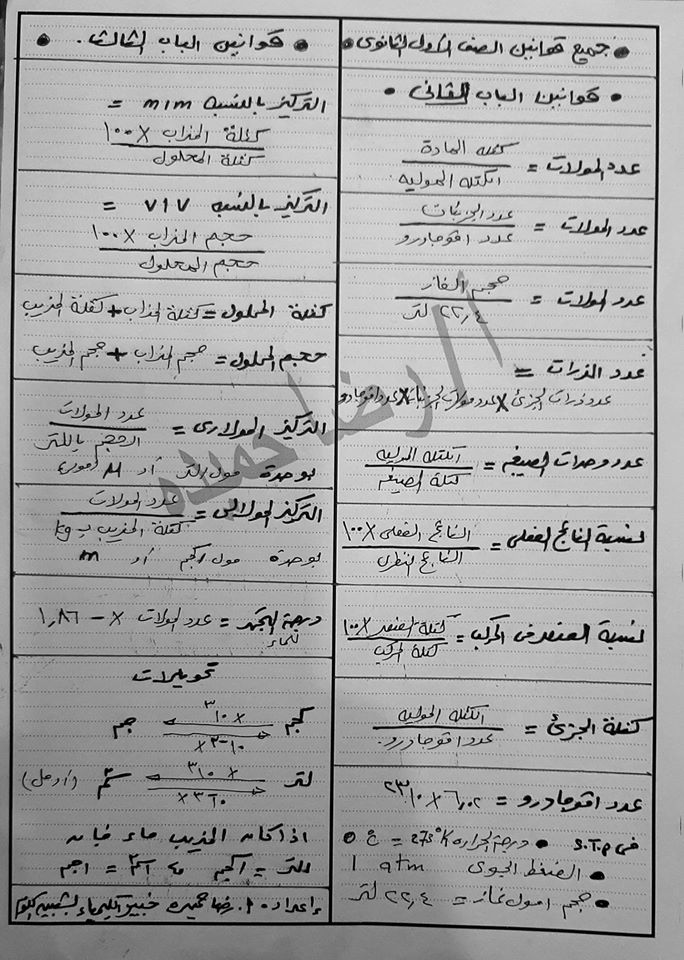 • جميع قوانين الصف الأول الثانوى •
• قوانين الباب الثانى •
عدد المولات = كتله المادة / الكتله الموليه
عدد المولات = عدد الجزيئات / عدد افوجادرو
عدد المولات = حجم الغاز / ٢٢,٤ لتر
عدد الذرات =
عدد ذرات الجزئ X عدد مولات الجزيئات X عدد افوجادرو
عدد وحدات الصيغه = الكتله الموليه / كتلة الصيغه
نسبة الناتج الفعلى = الناتج الفعلى X ١٠٠ / الناتج النظرى
نسبة العنصر فى المركب = كتلة العنصر X ١٠٠ / كتلة المركب
كتلة الجزئ = الكتله الموليه / عدد افوجادرو.
عدد افوجادرو = ٦,٠٢ X ١٠ ٢٣
فى S.T.P • درجة الحراره 273°K = 0 °ع
• الضغط الجوى 1 atm
• حجم امول غاز = ٢٢,٤ لتر
• قوانين الباب الثالث. •
التركيز بالنسبه m/m =
كتلة المذاب X ١٠٠ / كتلة المحلول
التركيز بالنسبه V/V =
حجم المذاب X ١٠٠ / حجم المحلول
كتلة المحلول = كتلة المذاب + كتلة المذيب
حجم المحلول = حجم المذاب + حجم المذيب
التركيز المولارى = عدد المولات / الحجم باللتر
بوحدة مول/لتر أو M (مولر)
التركيز المولالى = عدد المولات / كتلة المذيب بـ kg
بوحدة مول/كجم أو m
درجة التجمد للماء = عدد المولات X - ١,٨٦
تحويلات
كجم X ١٠ ٣ جم
X ١٠ -٣
لتر X ١٠ ٣ سم٣ (أو مل)
X ١٠ -٣
اذا كان المذيب ماء فان
١لتر = ١كجم ، ١سم٣ = ١جم
إعداد • أ. رضا حميده خبير الكيمياء بشبين الكوم
أ/ رضا حميده